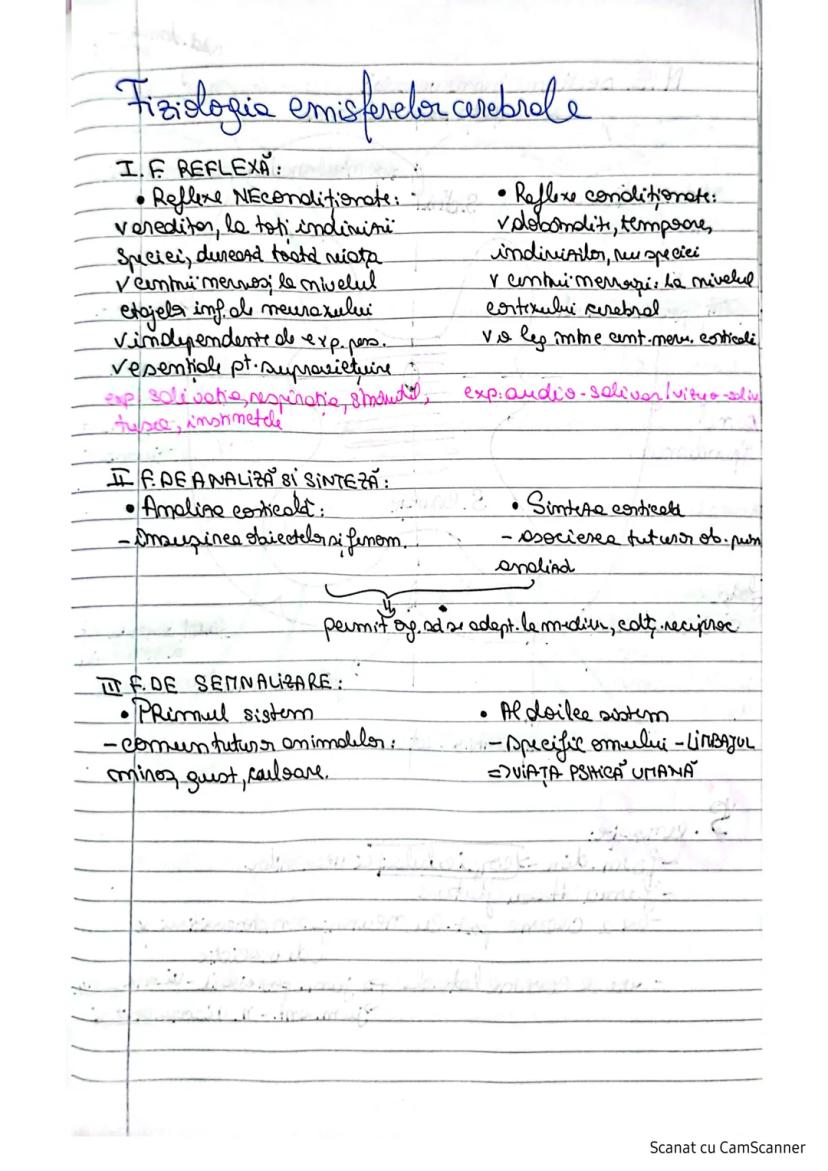 Fiziologia emisferelor cerebrale
I. F. REFLEXĂ:
• Reflexe NEcondiționate:
v ereditar, la toți indivizii
speciei, durează toată viața
v centrii nervoși la nivelul
etajelor inf. ale nevraxului
v independente de exp. pers.
v esențiale pt. supraviețuire
exp: salivația, respirația, strănutul,
tusea, instinctele
• Reflexe condiționate:
v dobândite, temporare,
indivizilor, nu speciei
v centrii nervoși: la nivelul
cortexului cerebral
v o leg între cent. nerv. corticali
exp: audio-salivar/vizuo-saliv
II F. DE ANALIZĂ SI SINTEZĂ:
• Analiza corticală:
- însușirea obiectelor și fenom.
• Sinteza corticală
- asocierea tuturor ob. prin
analiză
permit og. să se adapt. la mediu, ech. reciproc
III F. DE SEMNALIZARE:
• PRimul sistem
- comun tuturor animalelor:
miros, gust, culoare.
• Al doilea sistem
- specific omului - LIMBAJUL
=> VIAȚA PSIHICĂ UMANĂ
Scanat cu CamScanner